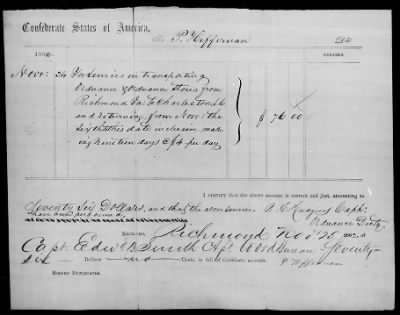 Confederate States of America,
To P. Heffernan Dr.
186
DOLLARS.
Novr. 24 For Services in transporting
Ordnance & Ordnance Stores from
Richmond Va. to Charleston S.C.
and returning from Novr. the
Six to this date inclusive mak
ing Nineteen days @ $4 per day $ 76 00
I CERTIFY that the above account is correct and just, amounting to
Seventy Six Dollars, and that the above services
have been performed Capt.
Ordnance Duty
RECEIVED, Richmond Nov 25 186
Capt. Edw. B. Smith Capt. Ord Bureau Seventy-
Six Dollars no Cents, in full of the above account.
P. Heffernan
SIGNED DUPLICATES.